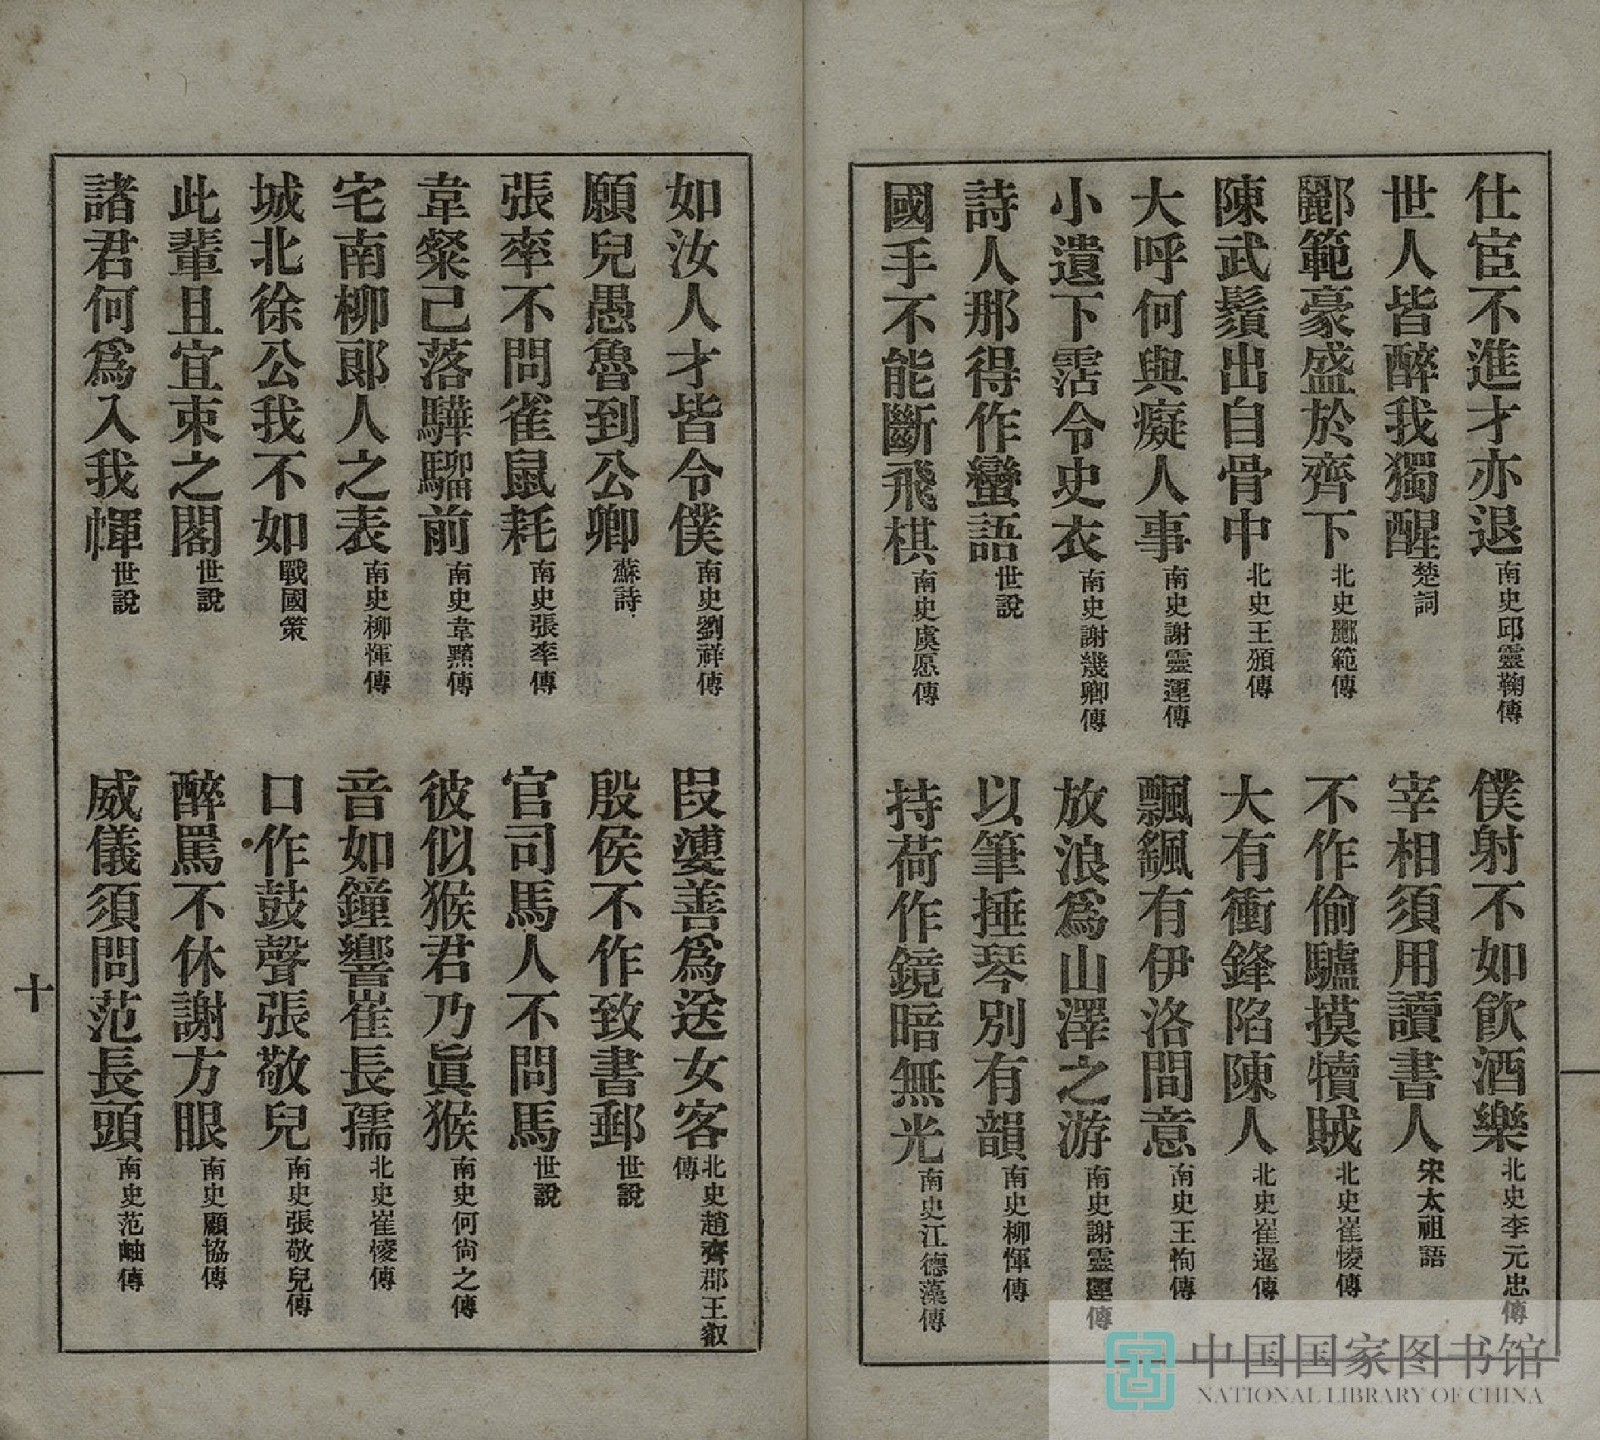 仕宦不進才亦退 南史邱靈鞠傳 僕射不如飮酒樂 北史李元忠傳
世人皆醉我獨醒 楚詞 宰相須用讀書人 宋太祖語
酈範豪盛於齊下 北史酈範傳 不作偷驢摸犢賊 北史崔㥄傳
陳武鬚出自骨中 北史王頒傳 大有衝鋒陷陳人 北史崔暹傳
大呼何與癡人事 南史謝靈運傳 飄颻有伊洛間意 南史王恂傳
小遺下霑令史衣 南史謝幾卿傳 放浪爲山澤之游 南史謝靈運傳
詩人那得作蠻語 世說 以筆捶琴別有韻 南史柳惲傳
國手不能斷飛棋 南史虞愿傳 持荷作鏡暗無光 南史江德藻傳
如汝人才皆令僕 南史劉祥傳 叚㜢善爲送女客 北史趙齊郡王叡傳
願兒愚魯到公卿 蘇詩 殷侯不作致書郵 世說
張率不問雀鼠耗 南史張率傳 官司馬人不問馬 世說
韋粲己落驊騮前 南史韋黯傳 彼似猴君乃眞猴 南史何尙之傳
宅南柳郎人之表 南史柳惲傳 音如鐘響崔長孺 北史崔㥄傳
城北徐公我不如 戰國策 口作鼓聲張敬兒 南史張敬兒傳
此輩且宜束之閣 世說 醉罵不休謝方眼 南史顧協傳
諸君何爲入我㡓 世說 威儀須問范長頭 南史范岫傳
十
中国国家图书馆
NATIONAL LIBRARY OF CHINA